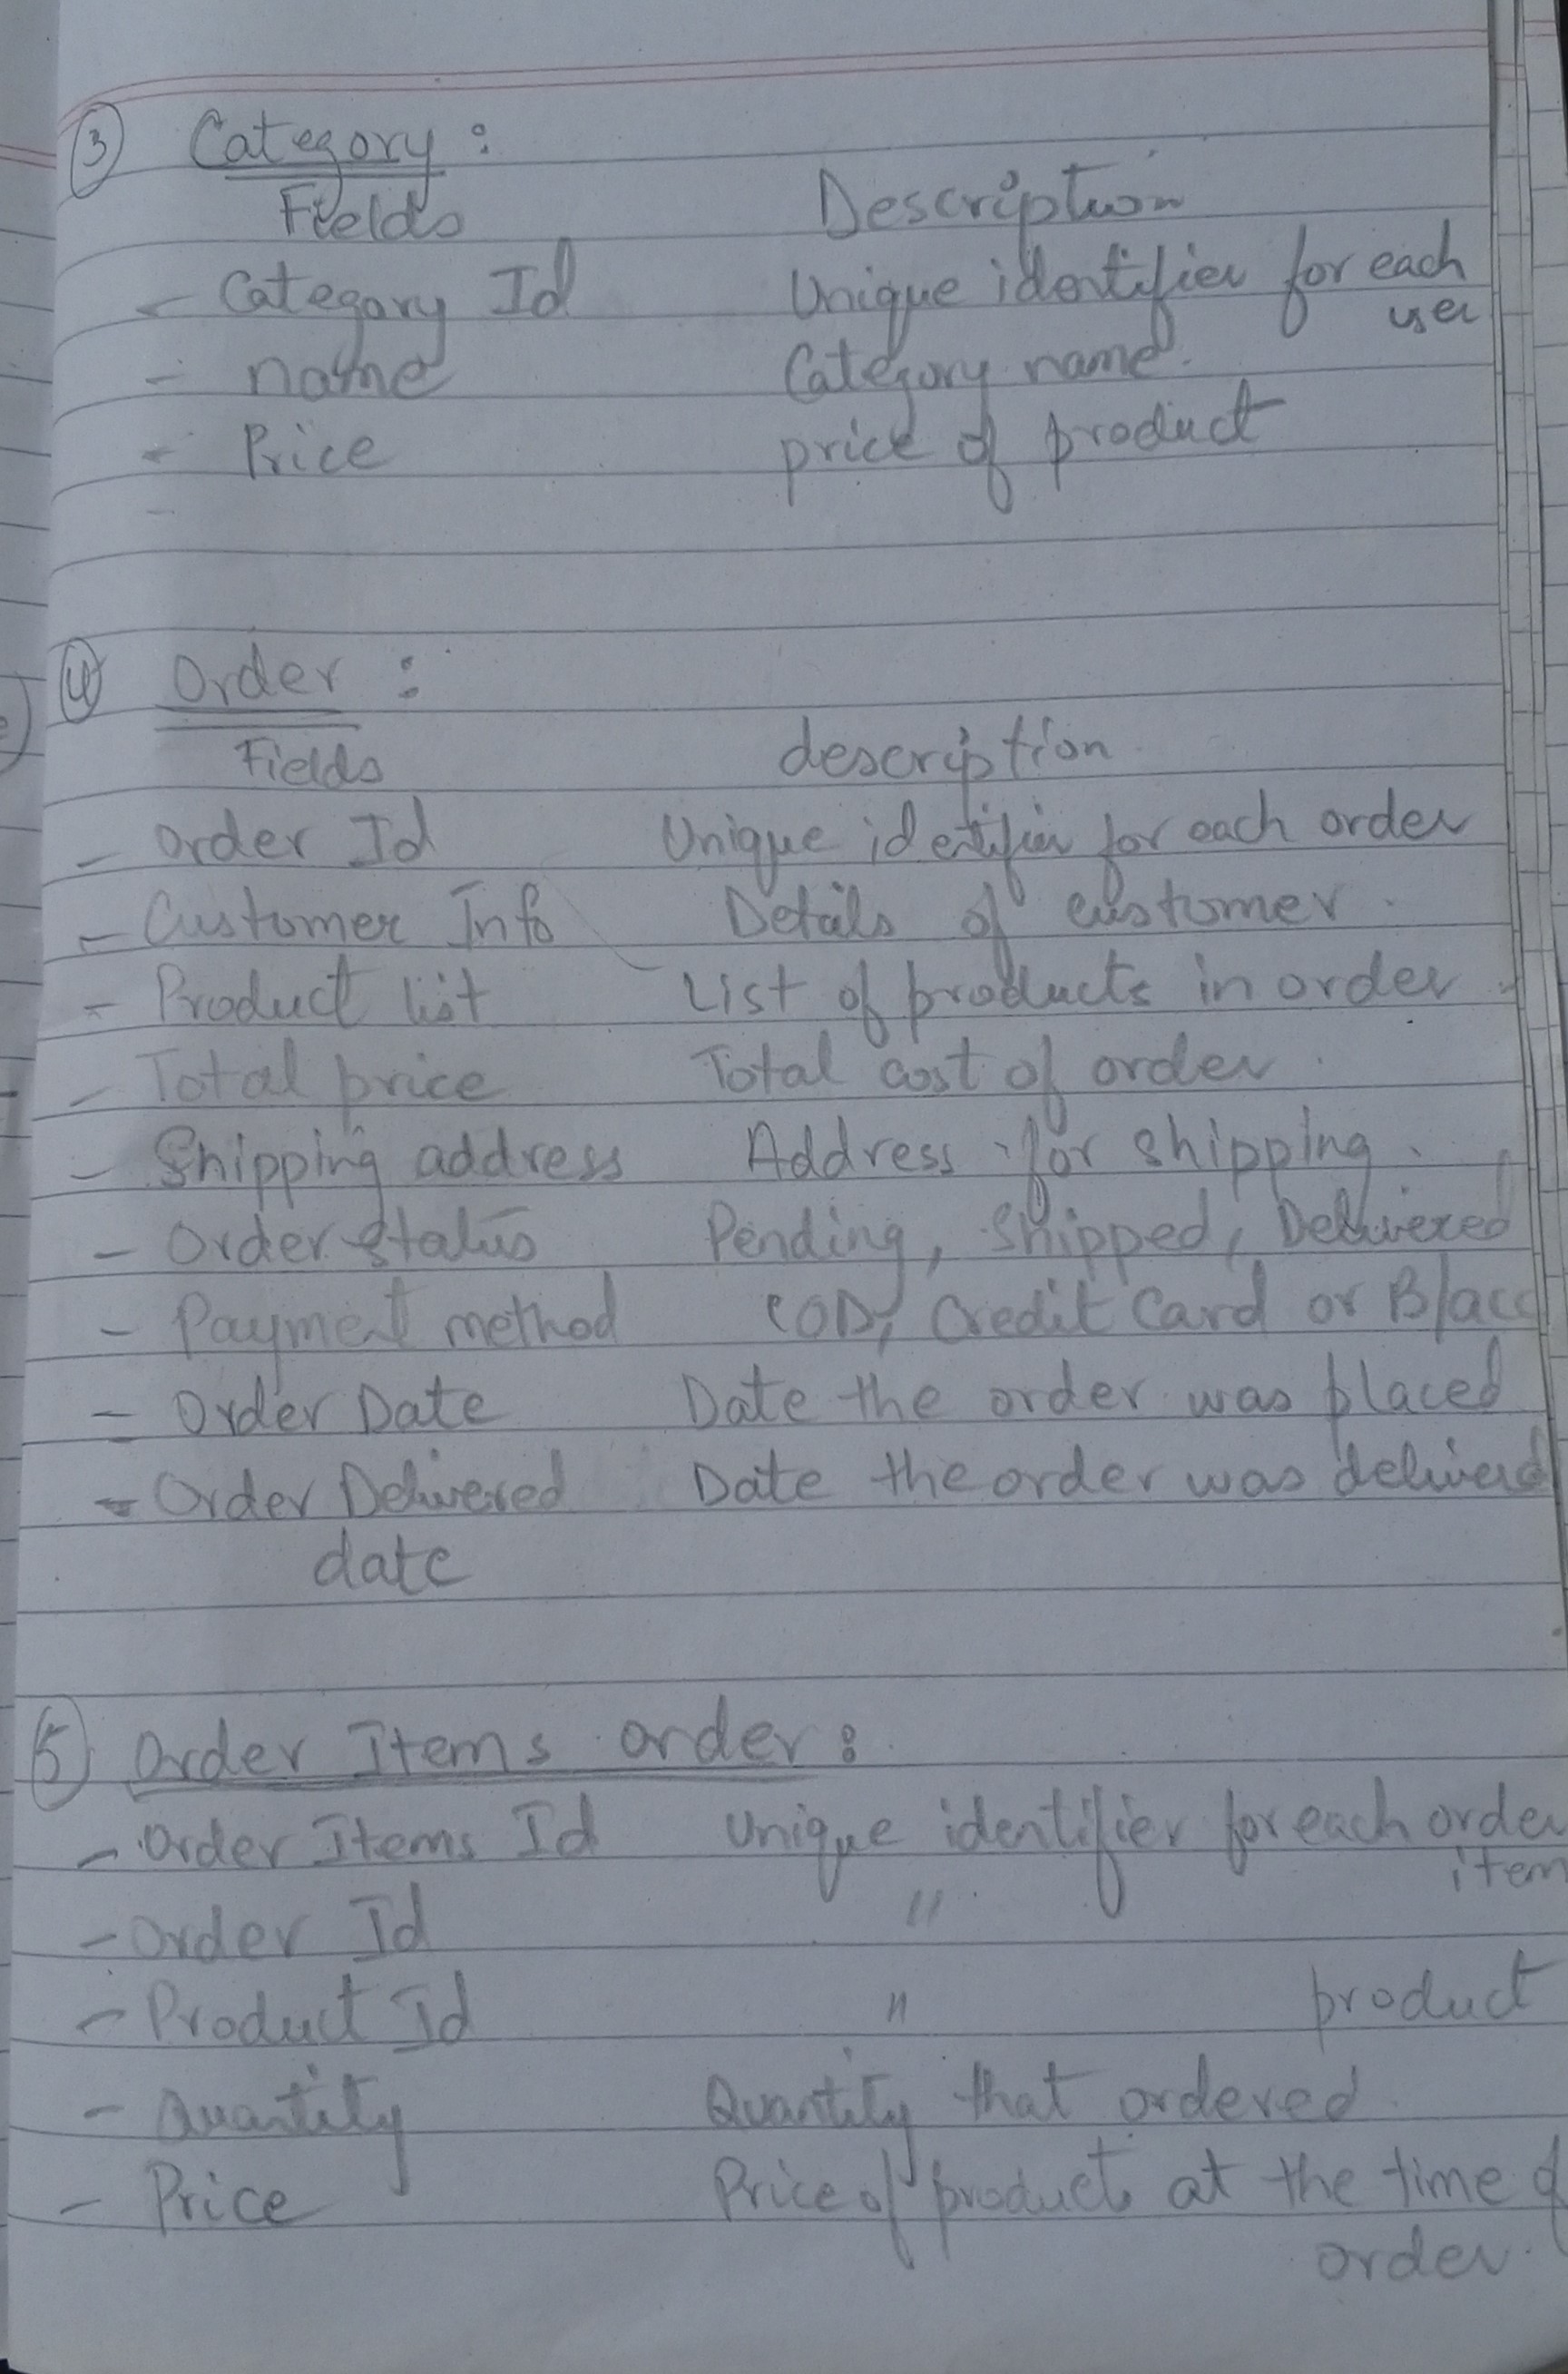 ③ Category :
Fields Description
- Category Id Unique identifier for each
user
- name Category name.
- Price price of product
-
④ Order :
Fields description
- Order Id Unique identifier for each order
- Customer Info Details of customer.
- Product list List of products in order
- Total price Total cost of order.
- Shipping address Address for shipping.
- Order status Pending, Shipped, Delivered
- Payment method COD, Credit Card or B/acc
- Order Date Date the order was placed
- Order Delivered Date the order was deliverd
date
⑤ Order Items order :
- Order Items Id Unique identifier for each order
item
- Order Id "
- Product Id " product
- Quantity Quantity that ordered.
- Price Price of products at the time of
order.